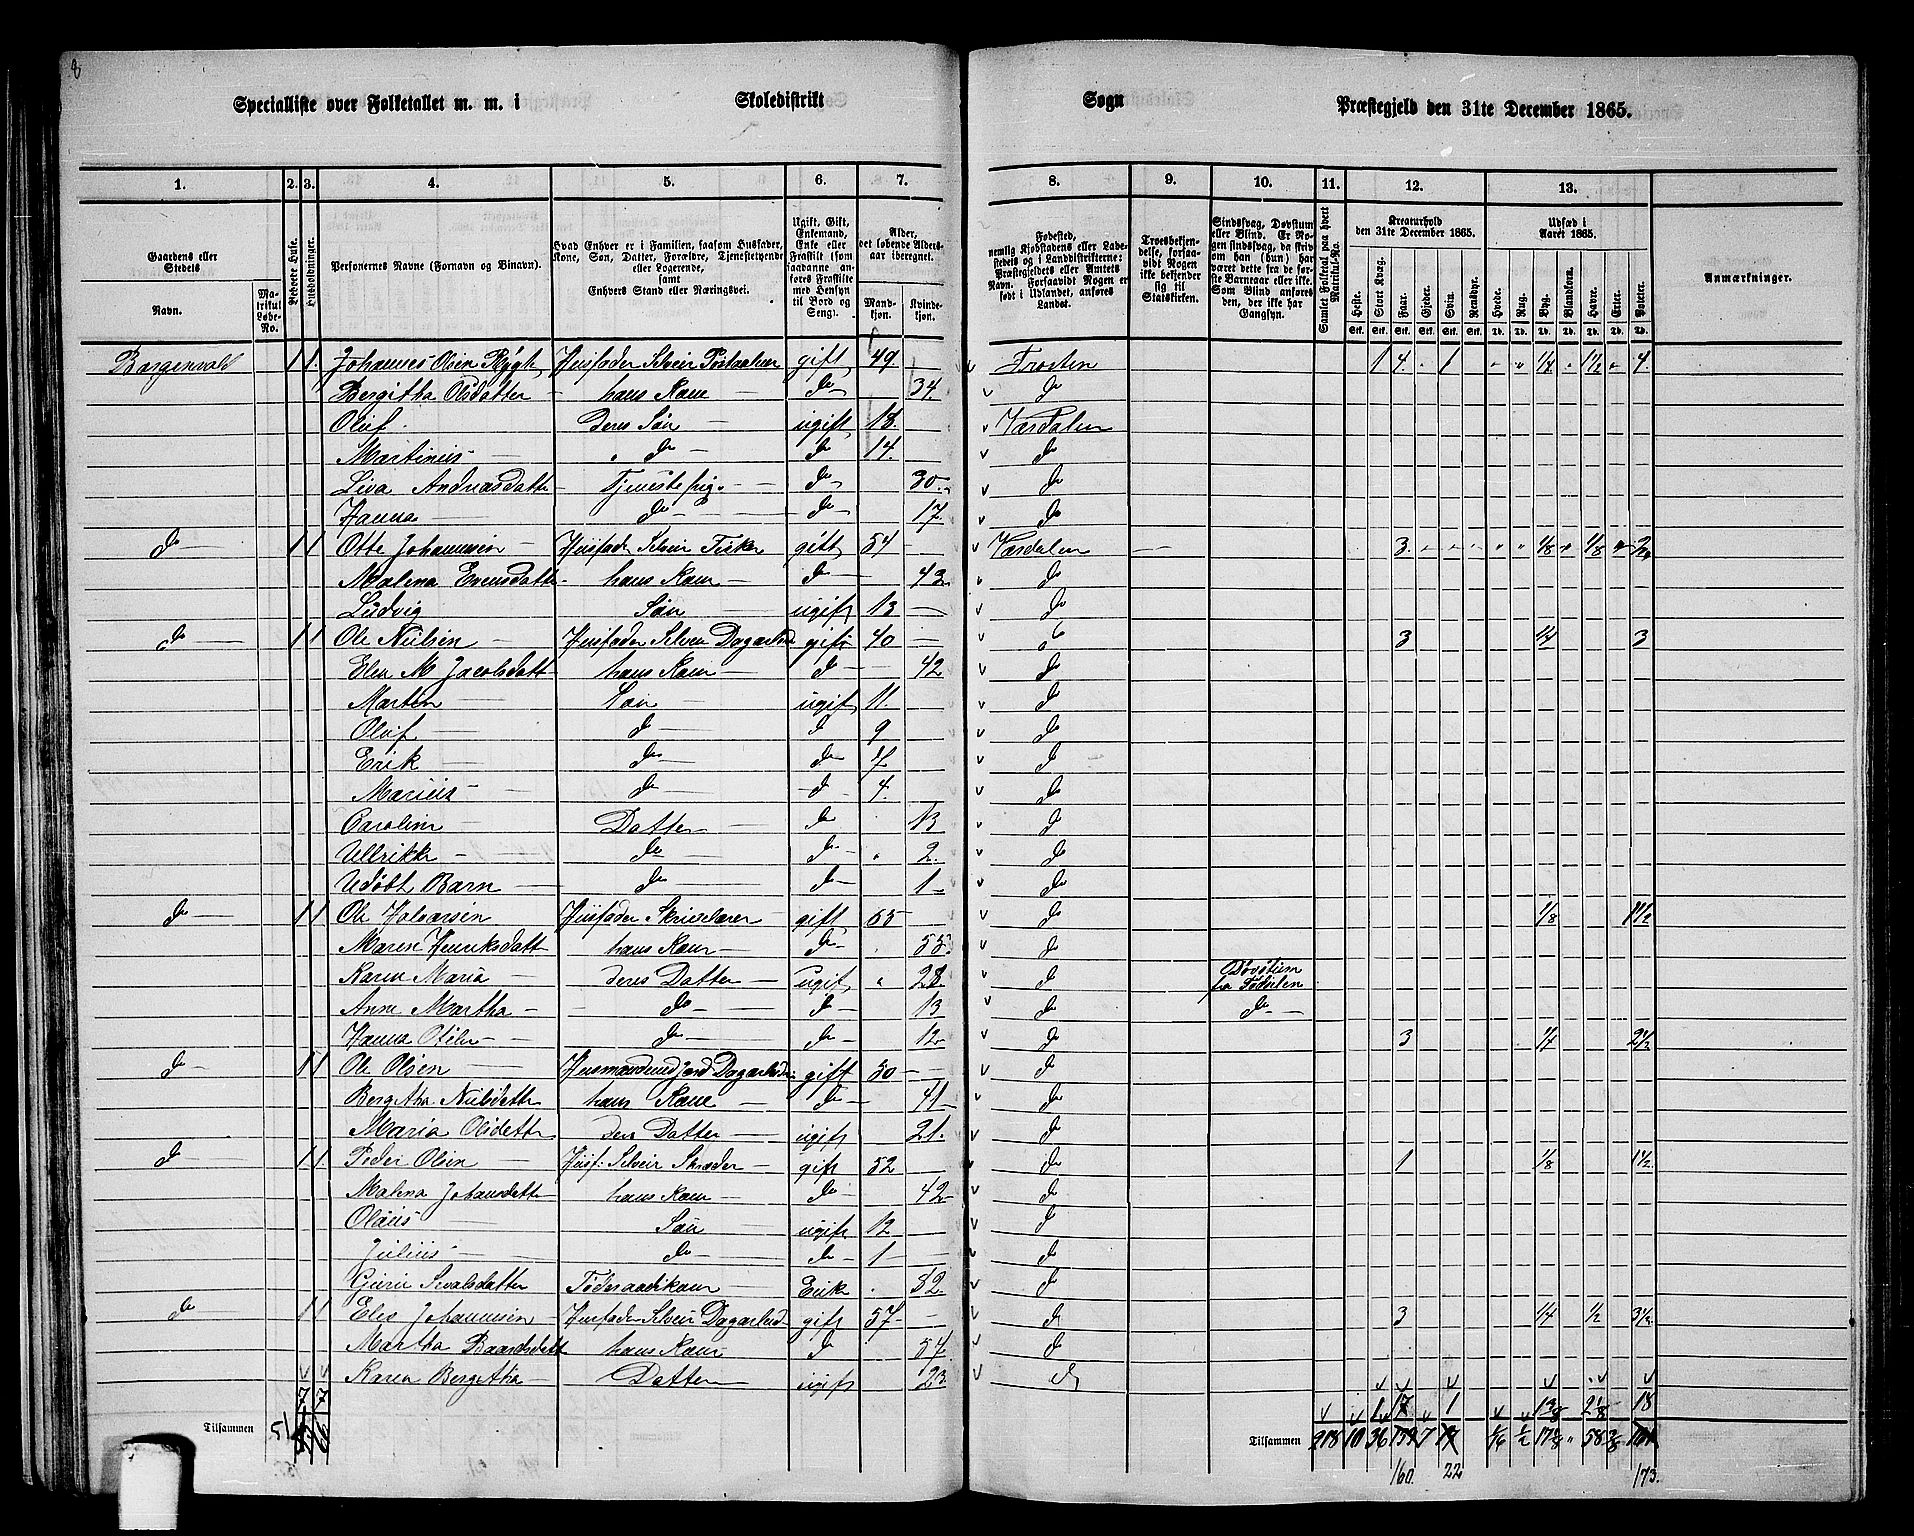 8
Specialliste over Folketallet m. m. i Skoledistrikt Sogn Præstegjeld den 31te December 1865.
1. 2. 3. 4. 5. 6. 7. 8. 9. 10. 11. 12. 13.
Gaardens eller Stedets
Navn.
Matrikul Løbe-No.
Beboede Huse.
Husholdninger.
Personernes Navne (Fornavn og Binavn).
Hvad Enhver er i Familien, saasom Husfader, Kone, Søn, Datter, Forældre, Tjenestetyende eller Logerende, samt Enhvers Stand eller Næringsvei.
Ugift, Gift, Enkemand, Enke eller Fraskilt (som saadanne anføres Fraskilte med Hensyn til Bord og Seng).
Alder, det løbende Aldersaar iberegnet.
Mandkjøn.
Kvindekjøn.
Fødested, nemlig Kjøbstadens eller Ladestedets og i Landdistrikterne: Præstegjeldets eller Amtets Navn. Forsaavidt Nogen er født i Udlandet, anføres Landet.
Troesbekjendelse, forsaavidt Nogen ikke bekjender sig til Statskirken.
Sindssvag, Døvstum eller Blind. Er Nogen sindssvag, da skriv om han (hun) har været dette fra de første Barneaar eller ikke. Som Blind anføres den, der ikke har Gangsyn.
Samlet Folketal paa hvert Matrikul-No.
Kreaturhold den 31te December 1865.
Heste. Stort Kvæg. Faar. Gjeder. Sviin. Rensdyr.
Udsæd i Aaret 1865.
Hvede. Rug. Byg. Blandkorn. Havre. Erter. Poteter.
Anmærkninger.
Borgenvald 1 1 Johannes Olsen Rygh Husfader Selveir gift 49. Frosten 1 4. 1 1/4 1 1/2 4.
Bergitha Olsdatter hans Kone do 34. do
Oluf deres Søn ugift 18. Værdalen
Martinus do do 14. do
Liva Andreasdatter Tjenestepige do 30. do
Hanna do do 17. do
do 1 1 Otte Johannesen Husfader Selveir Fisker gift 54 Værdalen 3. 1/8 1/8
Malena Evensdatter hans Kone do 43 do
Ludvig Søn ugift 13 do
do 1 1 Ole Nielsen Husfader Selveir Dagarbeider gift 40 do 3 1/4 3
Elen M Jacobsdatt hans Kone do 42 do
Morten Søn ugift 11. do
Oluf do do 9 do
Erik do do 7 do
Marius do do 4. do
Caroline Datter do 13 do
Ullrikke do do 2. do
Udøbt Barn do do 1 do
do 1 1 Ole Halvorsen Husfader gift 65 do 1/8 1 1/2
Marese Henriksdatt hans Kone do 55. do
Karen Maria deres Datter ugift 28 do Døvstum fra Fødselen
Anne Martha do do 13 do do
Hanna Oteli do do 12 do 3 1/4 2 1/2
do 1 1 Ole Olsen Husmand med jord Dagarbeider gift 50 do
Bergitha Nilsdatte hans Kone do 41 do
Maria Olsdatte deres Datter ugift 21. do
do 1 1 Peder Olsen Husf: Selveir Skræder gift 52 do 1 1/8 1 1/2.
Malena Johansdatte hans Kone do 42 do
Olaus Søn ugift 12 do
Julius do do 1 do
Gurie Sivalsdatter Føderaadskone Enke 82 do
do 1 1 Elev Johannesen Husfader Selveir Dagarbeid gift 57 do 3 1/4 1/2 3 1/2
Martha Baardsdatt hans Kone do 57 do
Karen Bergitha Datter ugift 23 do
7 7 1 17 1 1 3/8 2 1/8 18
Tilsammen 51 66 Tilsammen 918 10 36 7 1/16 1/2 58
160. 22 173.